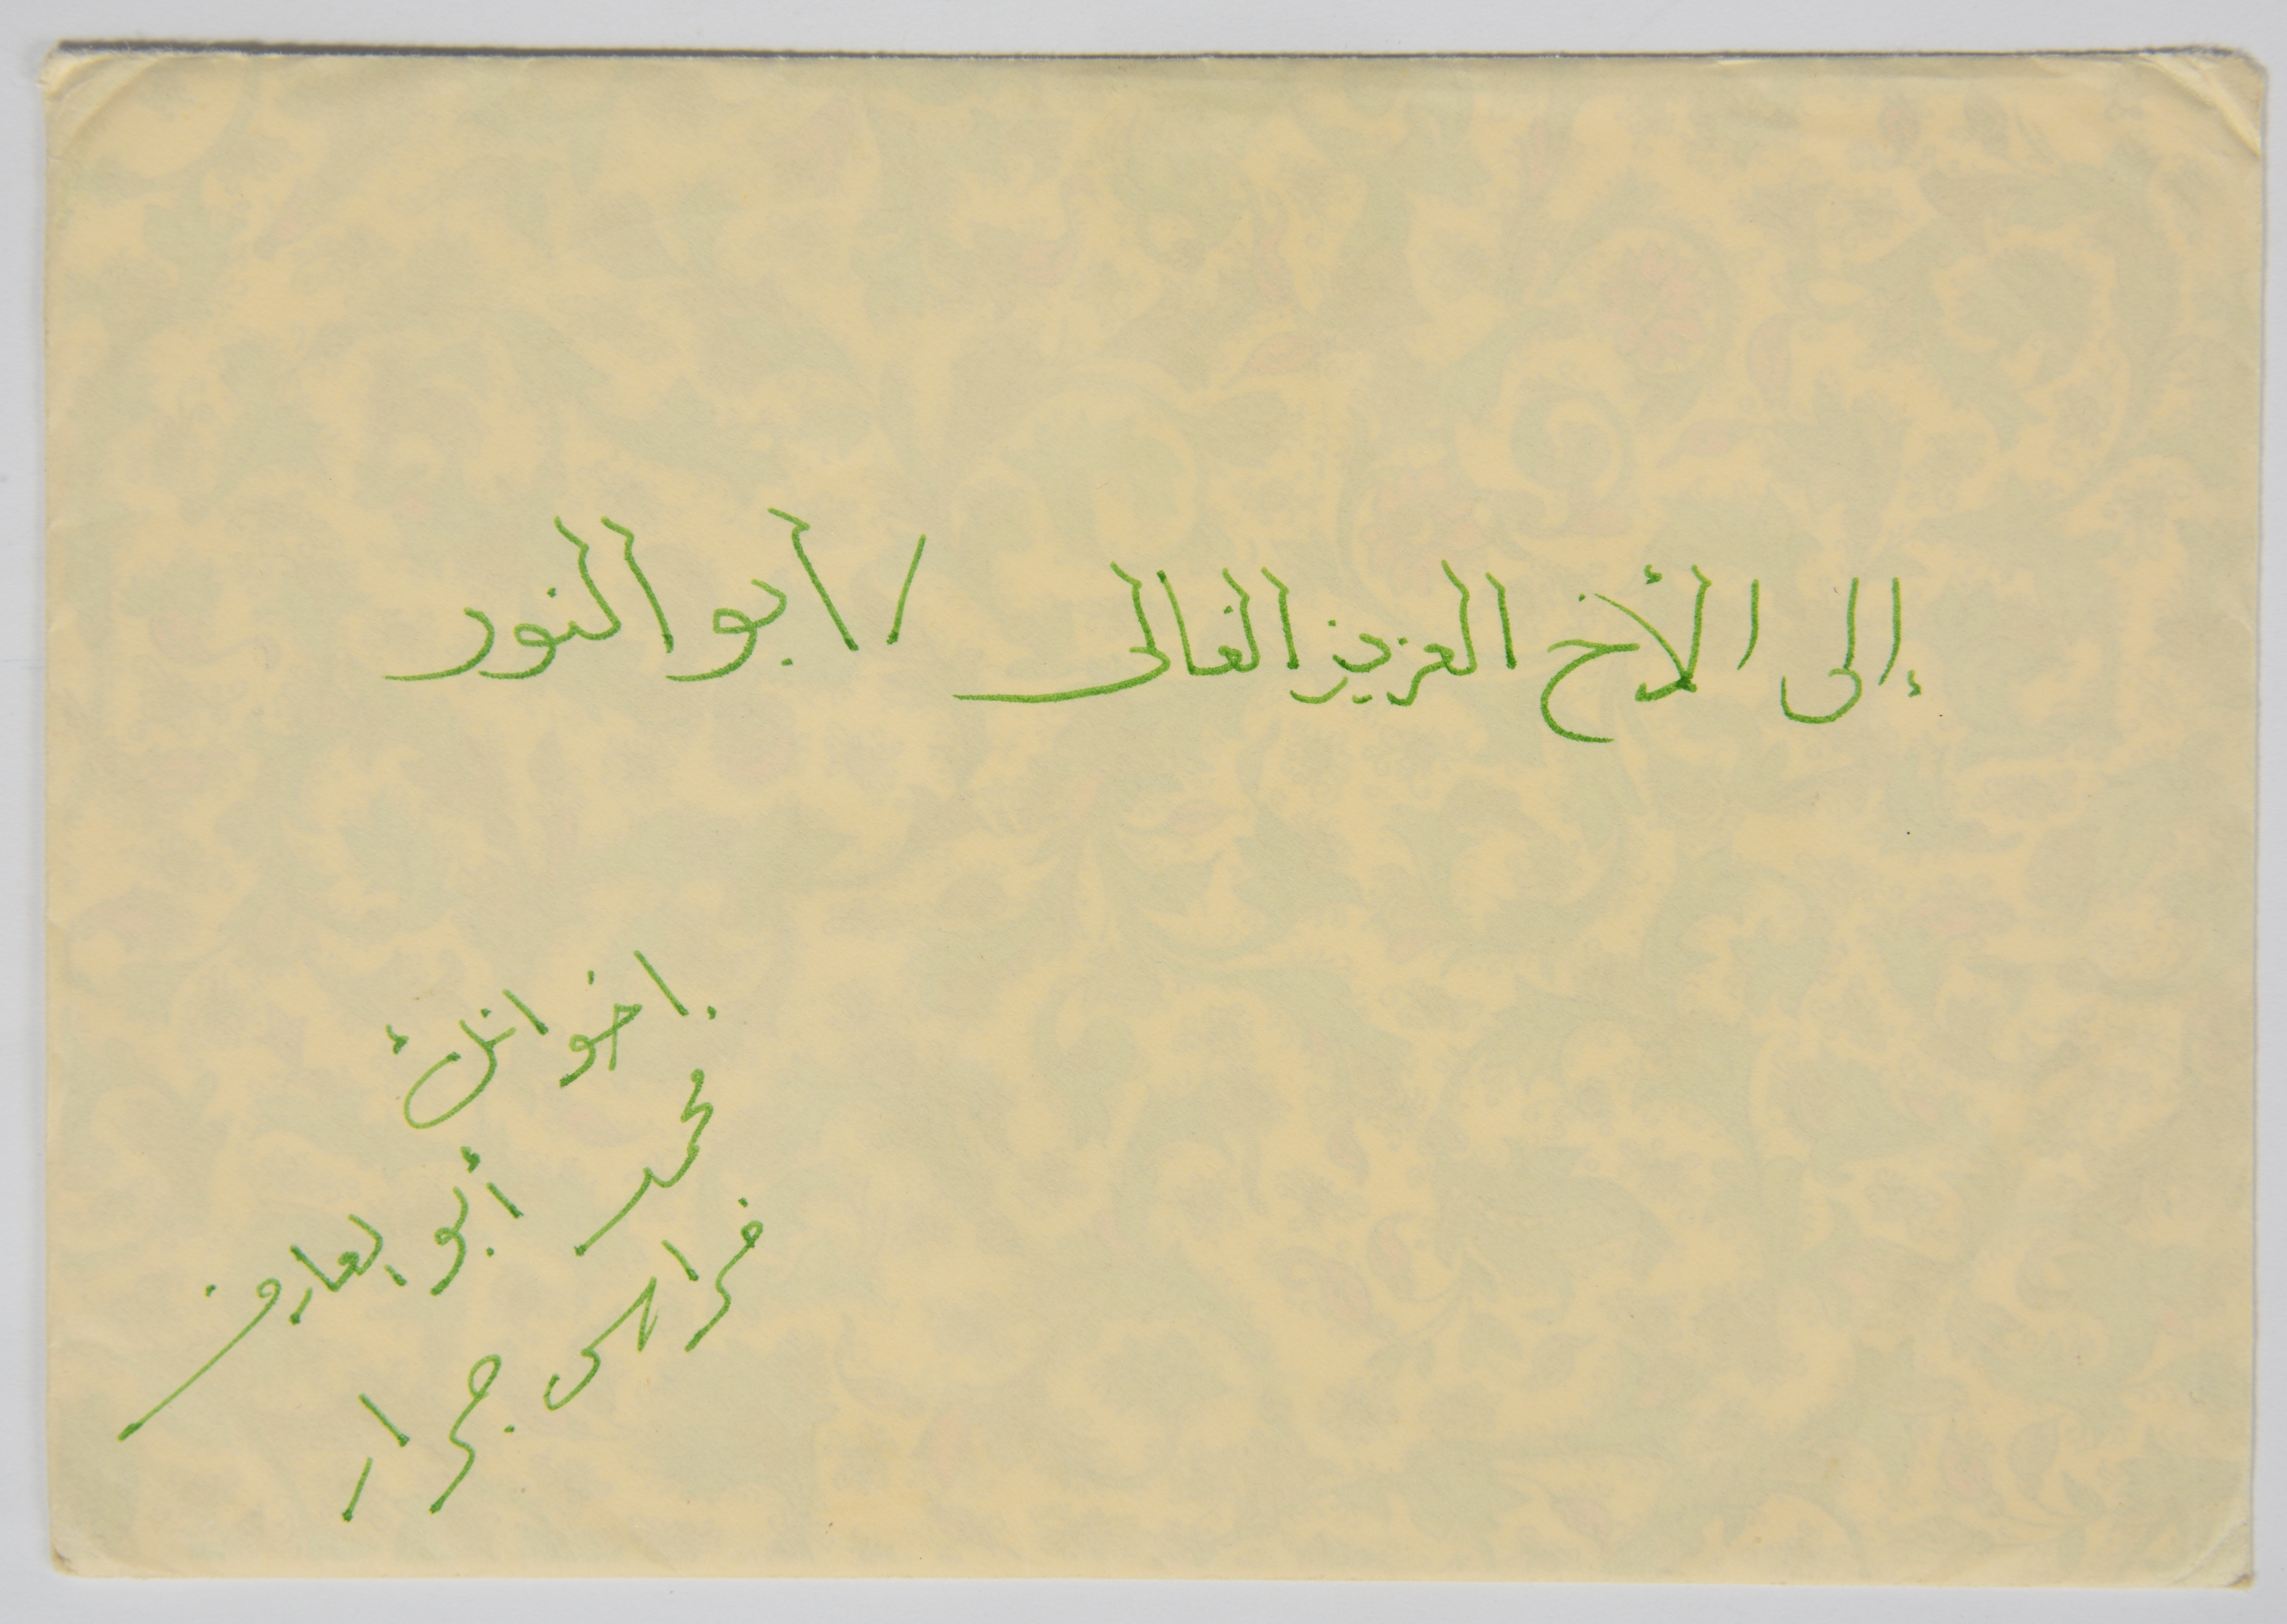 إلى الأخ العزيز الغالى / ابو النور
اخوانك
محمد أبو العارف
فراس جرار